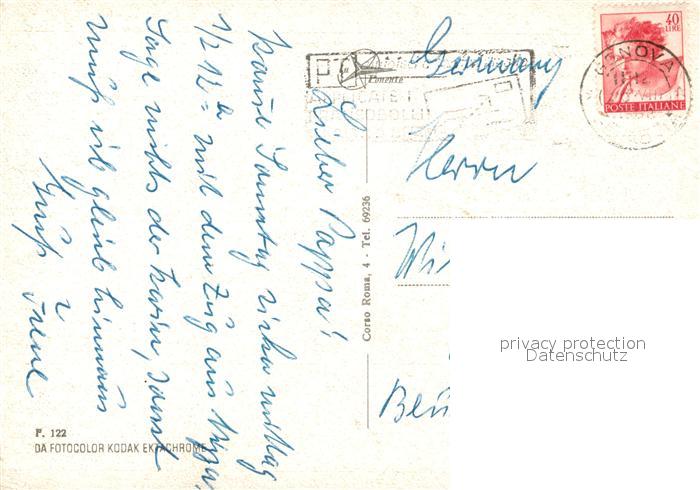 Lieber Pappa!
komme Samstag zirka mittag
1/2 12 h mit dem Zug aus Nizza.
Sage nichts der Karin, sonst
muß ich gleich hinaus
Gruß
Irene
Germany
Herrn
Wi
Corso Roma, 4 - Tel. 69236
F. 122
DA FOTOCOLOR KODAK EKTACHROME
40
LIRE
POSTE ITALIANE
GENOVA
privacy protection
Datenschutz